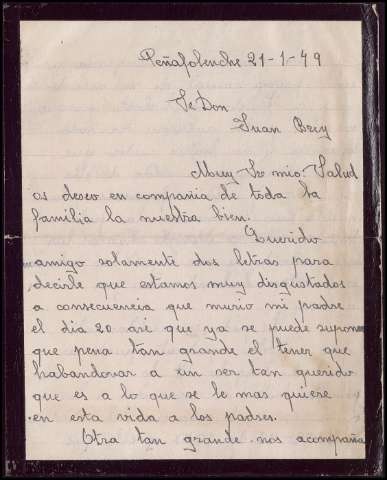 Peñafolenche 21-1-49
Se Don
Juan Bery
Muy Sr mio: Salud
os deseo en compañia de toda la
familia la nuestra bien.
Querido
amigo solamente dos letras para
decirte que estamos muy disgustados
a consecuencia que murio mi padre
el dia 20 asi que ya se puede supone
que pena tan grande el tener que
habandonar a un ser tan querido
que es a lo que se le mas quiere
en esta vida a los padres.
Otra tan grande nos acompaña